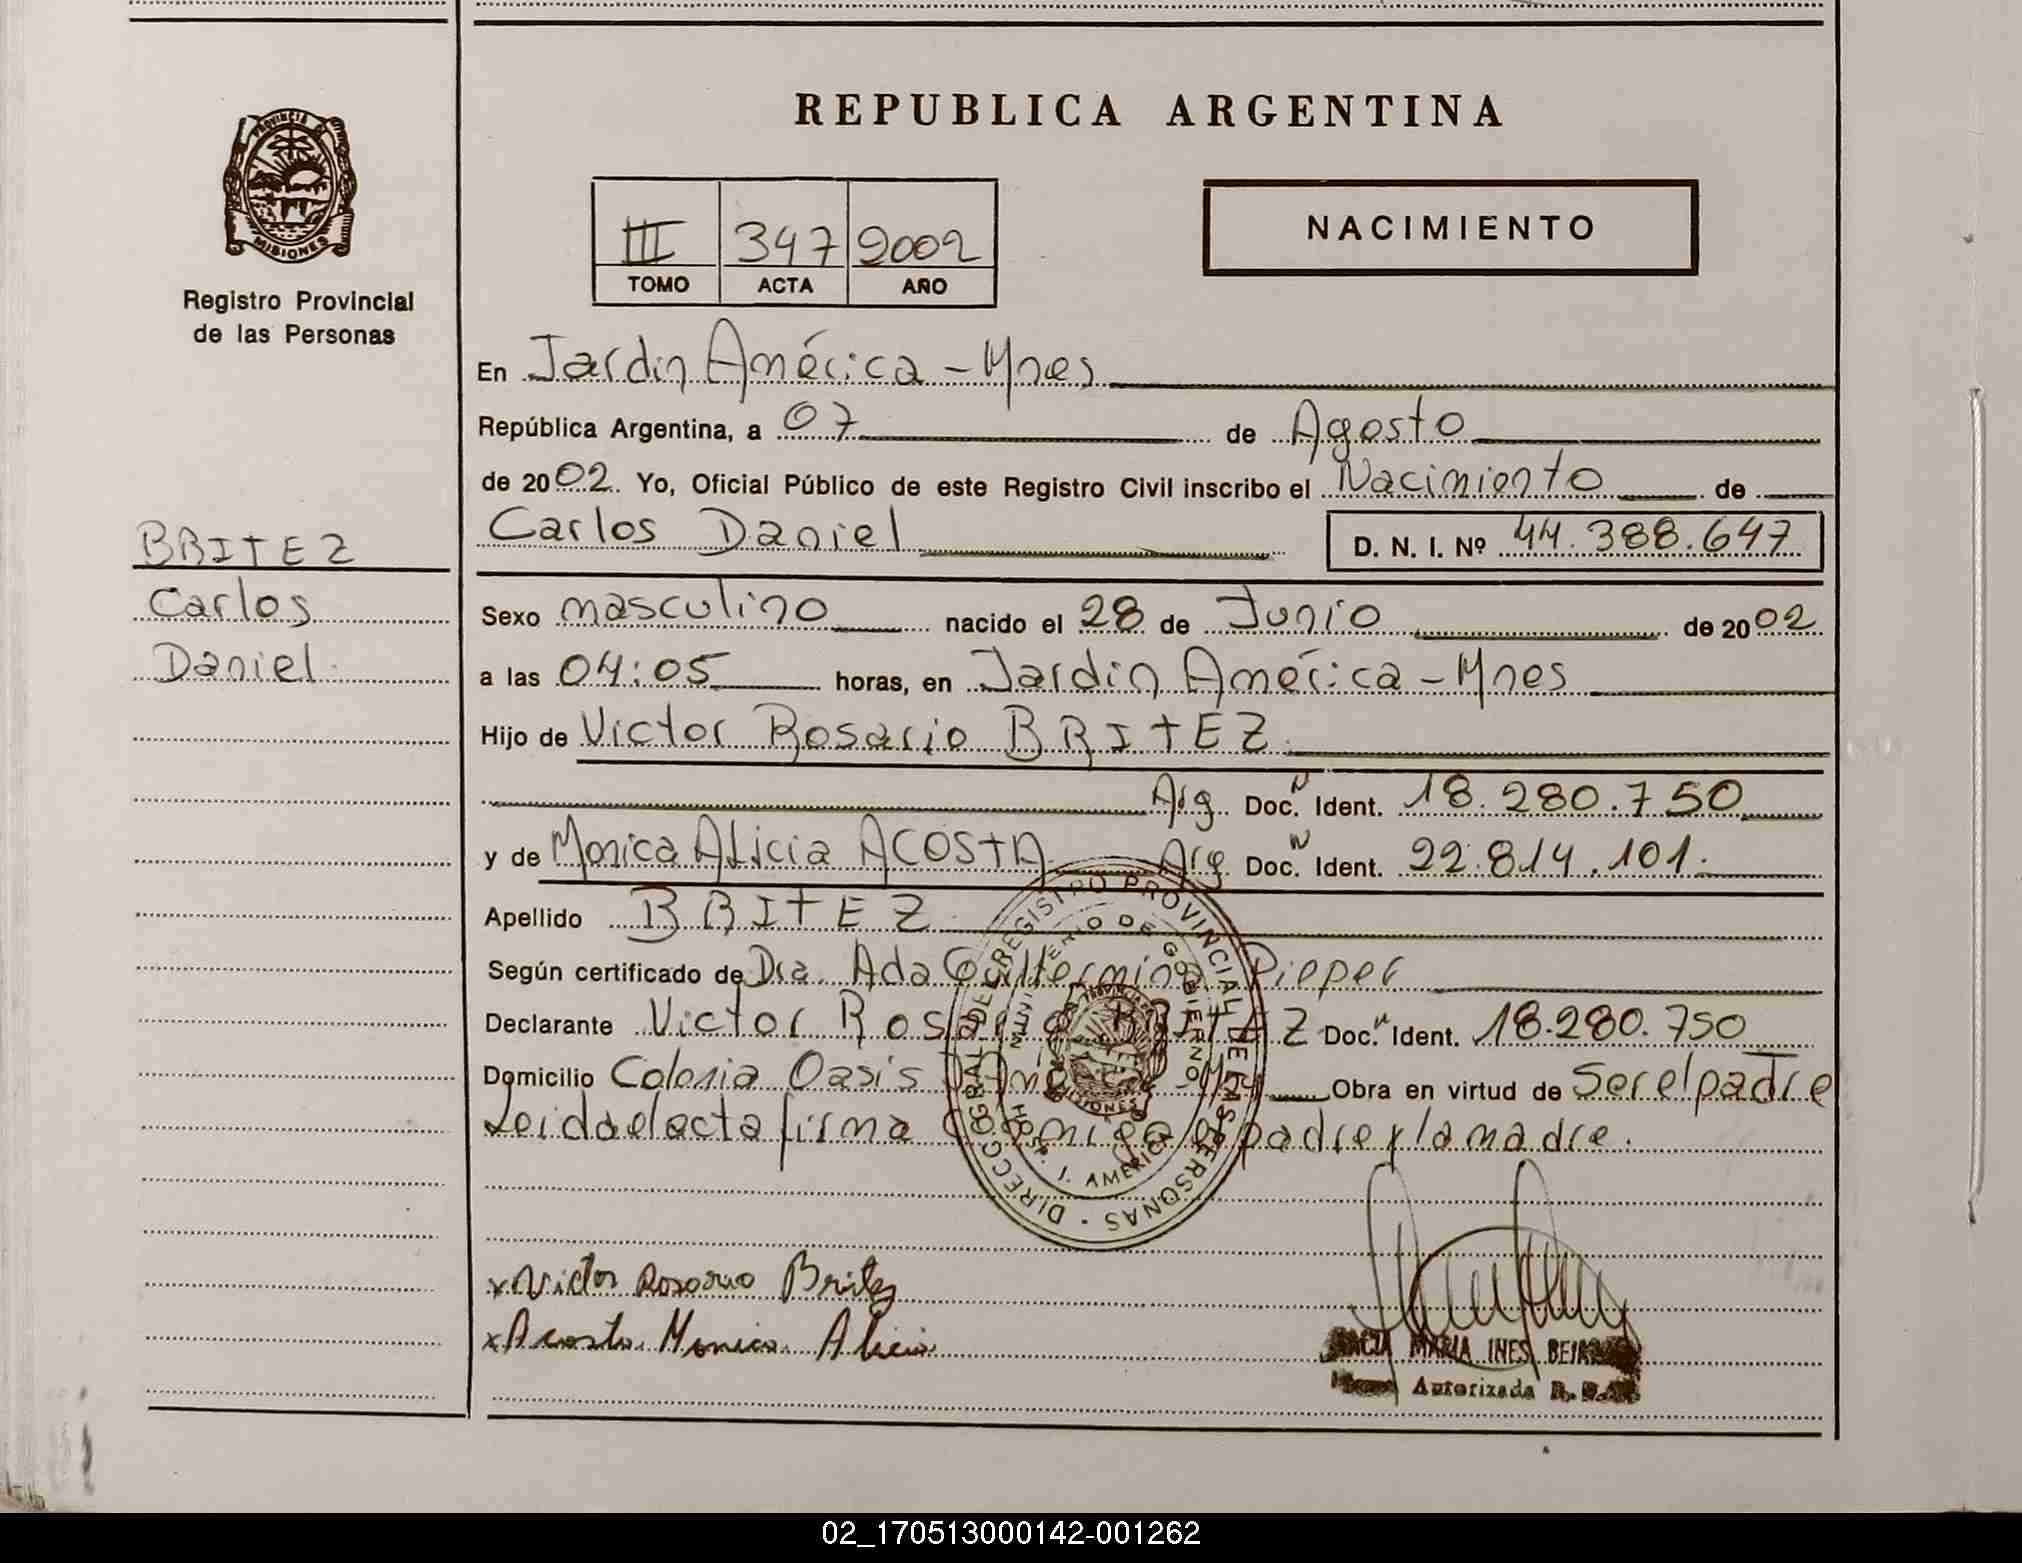 REPUBLICA ARGENTINA
PROVINCIA DE
MISIONES
Registro Provincial
de las Personas
III 347 2002
TOMO ACTA AÑO
NACIMIENTO
En Jardin América - Mnes
República Argentina, a 07 de Agosto
de 2002. Yo, Oficial Público de este Registro Civil inscribo el Nacimiento de
Carlos Daniel D. N. I. Nº 44.388.647
BRITEZ
Carlos
Daniel
Sexo masculino nacido el 28 de Junio de 2002
a las 04:05 horas, en Jardin América - Mnes
Hijo de Victor Rosario BRITEZ
Arg. Doc. N Ident. 18.280.750
y de Monica Alicia ACOSTA Arg. Doc. N Ident. 22.814.101.
Apellido BRITEZ
Según certificado de Dra. Ada Guillermina Pieper
Declarante Victor Rosario BRITEZ Doc. N Ident. 18.280.750
Domicilio Colonia Oasis Obra en virtud de Ser el padre
Leida el acta firma conmigo el padre y la madre.
DIRECC. GRAL. DEL REGISTRO PROVINCIAL DE LAS PERSONAS
MINISTERIO DE GOBIERNO
HOSP. J. AMERICA
x Victor Rosario Britez
x Acosta Monica Alicia
MARIA INES
Autorizada
02_170513000142-001262